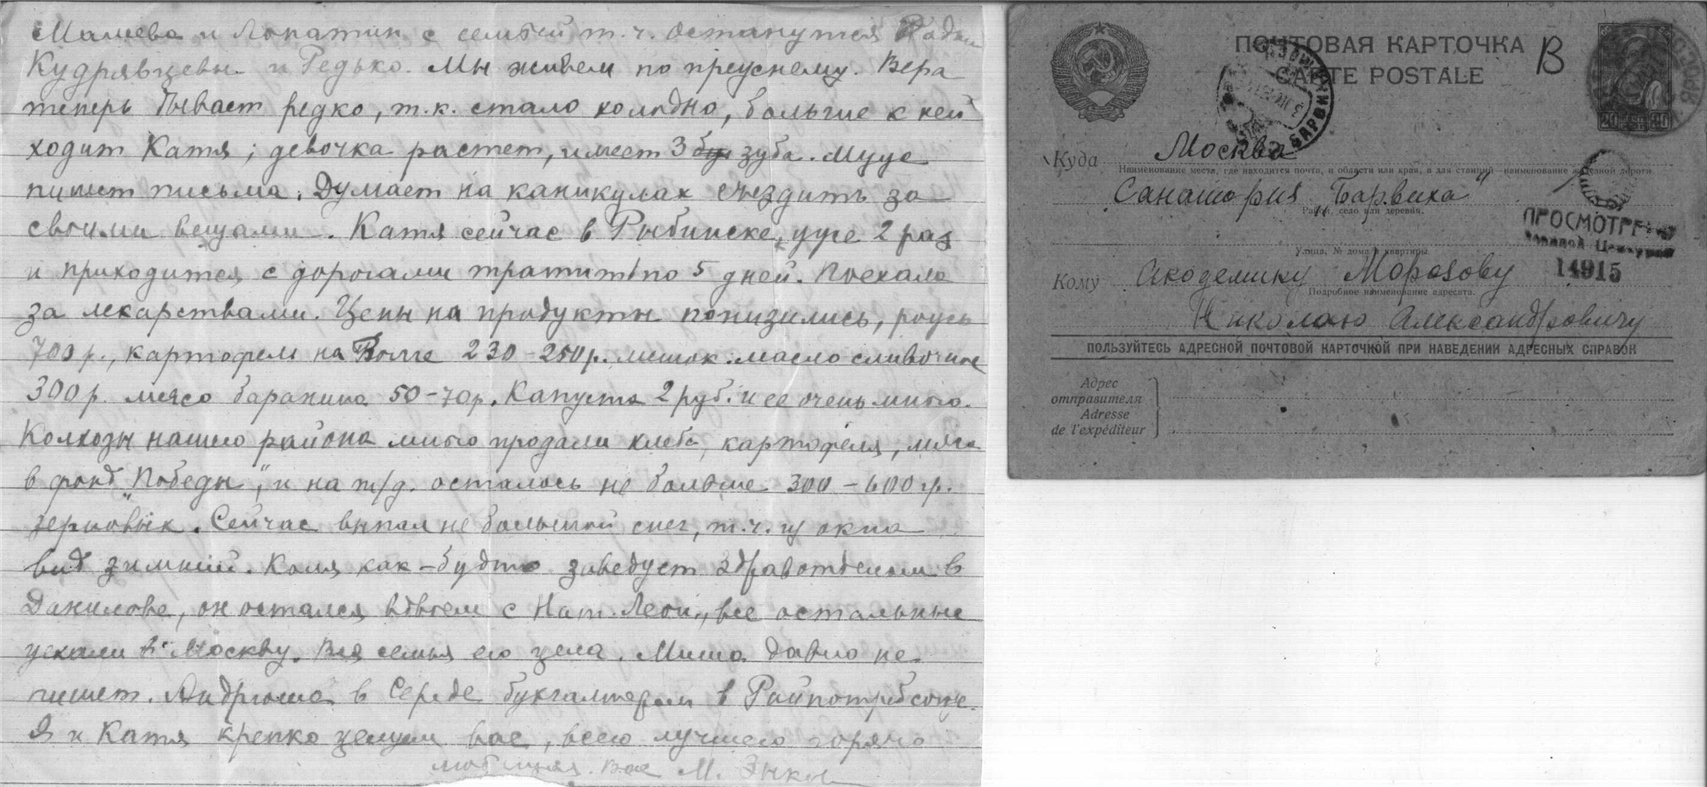 Малиева и Лопатин с семьёй т.ч. останутся
Кудрявцевы и Редько. Мы живем по прежнему. Вера
теперь бывает редко, т.к. стало холодно, больше к ней
ходит Катя; девочка растет, имеет 3 зуба. Муж
пишет письма. Думает на каникулах съездить за
своими вещами. Катя сейчас в Рыбинске, уже 2 раз
и приходится с дорогами тратить по 5 дней. Поехала
за лекарствами. Цены на продукты понизились, рожь
700 р., картофель на Волге 230-250 р. мешок. масло сливочное
300 р. мясо баранина 50-70 р. Капуста 2 руб. и ее очень много.
Колхозы нашего района много продали хлеба, картофеля, мяса
в фонд "Победы", и на т/д. осталось не больше 300-400 гр.
зерновых. Сейчас выпал не большой снег, т.ч. из окна
вид зимний. Коля как-будто заведует Здравотделом в
Данилове, он остался вдвоем с Нат. Леон., все остальные
уехали в Москву. Вся семья его цела. Миша давно не
пишет. Андрюша в Середе бухгалтером в Райпотребсоюзе.
Я и Катя крепко целуем вас, всего лучшего горячо
любящая вас М.
ПОЧТОВАЯ КАРТОЧКА В
CARTE POSTALE
20 20
БАРВИХА
Куда Москва
Наименование места, где находится почта, и области или края, а для станций - наименование железной дороги.
Санатория „Барвиха"
Район, село или деревня.
ПРОСМОТРЕНО
Военной Цензурой
14915
Улица, № дома и квартиры.
Кому Академику Морозову
Подробное наименование адресата.
Николаю Александровичу
ПОЛЬЗУЙТЕСЬ АДРЕСНОЙ ПОЧТОВОЙ КАРТОЧКОЙ ПРИ НАВЕДЕНИИ АДРЕСНЫХ СПРАВОК
Адрес
отправителя
Adresse
de l'expéditeur